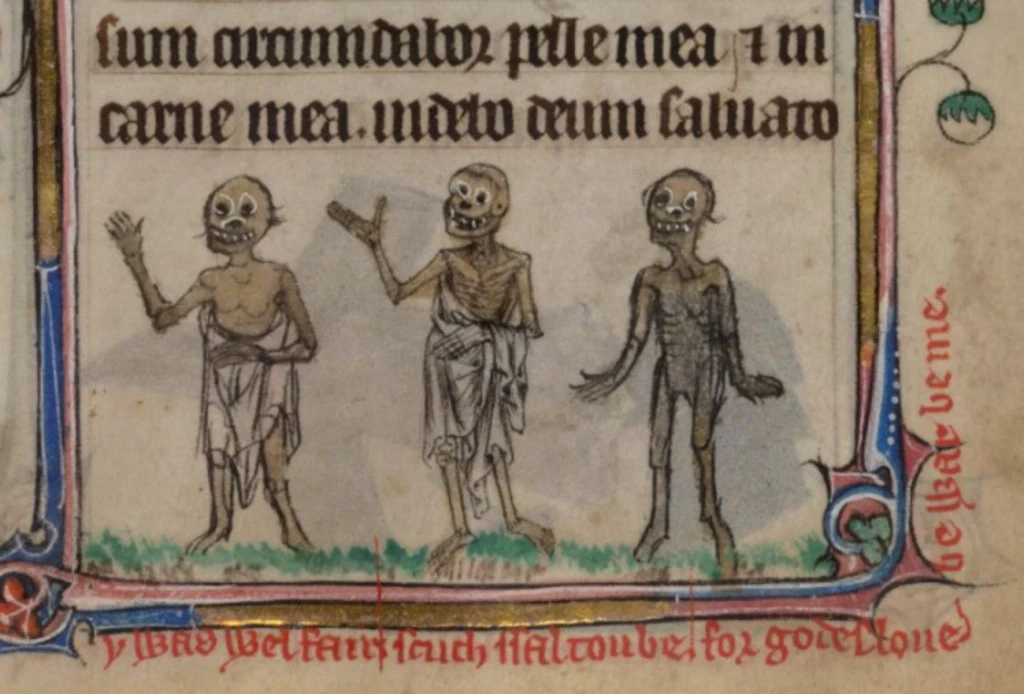 sum circumdabor pelle mea ⁊ in
carne mea. uidebo deum saluato
y was wel fair scuch ssaltou be. for godes loue
be wer be me.